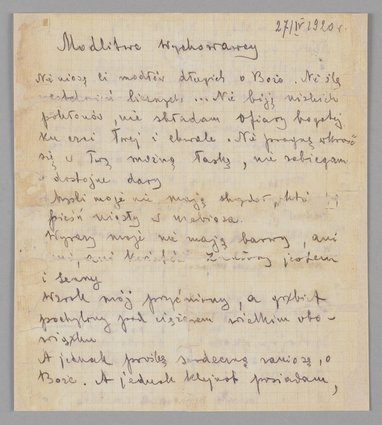 27/IV 1920 r.
Modlitwa wychowawcy
Nie niosę Ci modłów długich o Boże. Nie ślę
westchnień licznych... Nie biję niskich
pokłonów, nie składam ofiary bogatej
ku czci Twej i chwale. Nie pragnę wkraść
się w Twą można łaskę, nie zabiegam
o dostojne dary
Myśli moje nie mają skrzydeł, któ
pieśń niosły w niebiosa.
Wyrazy moje nie mają barwy, ani
ni, ani kwiatów Znużony jestem
i senny
Wzrok mój przyćmiony, a grzbiet
pochylony pod ciężarem wielkim obo-
wiązku
A jednak prośbę serdeczną zanoszę, o
Boże. A jednak klejnot posiadam,